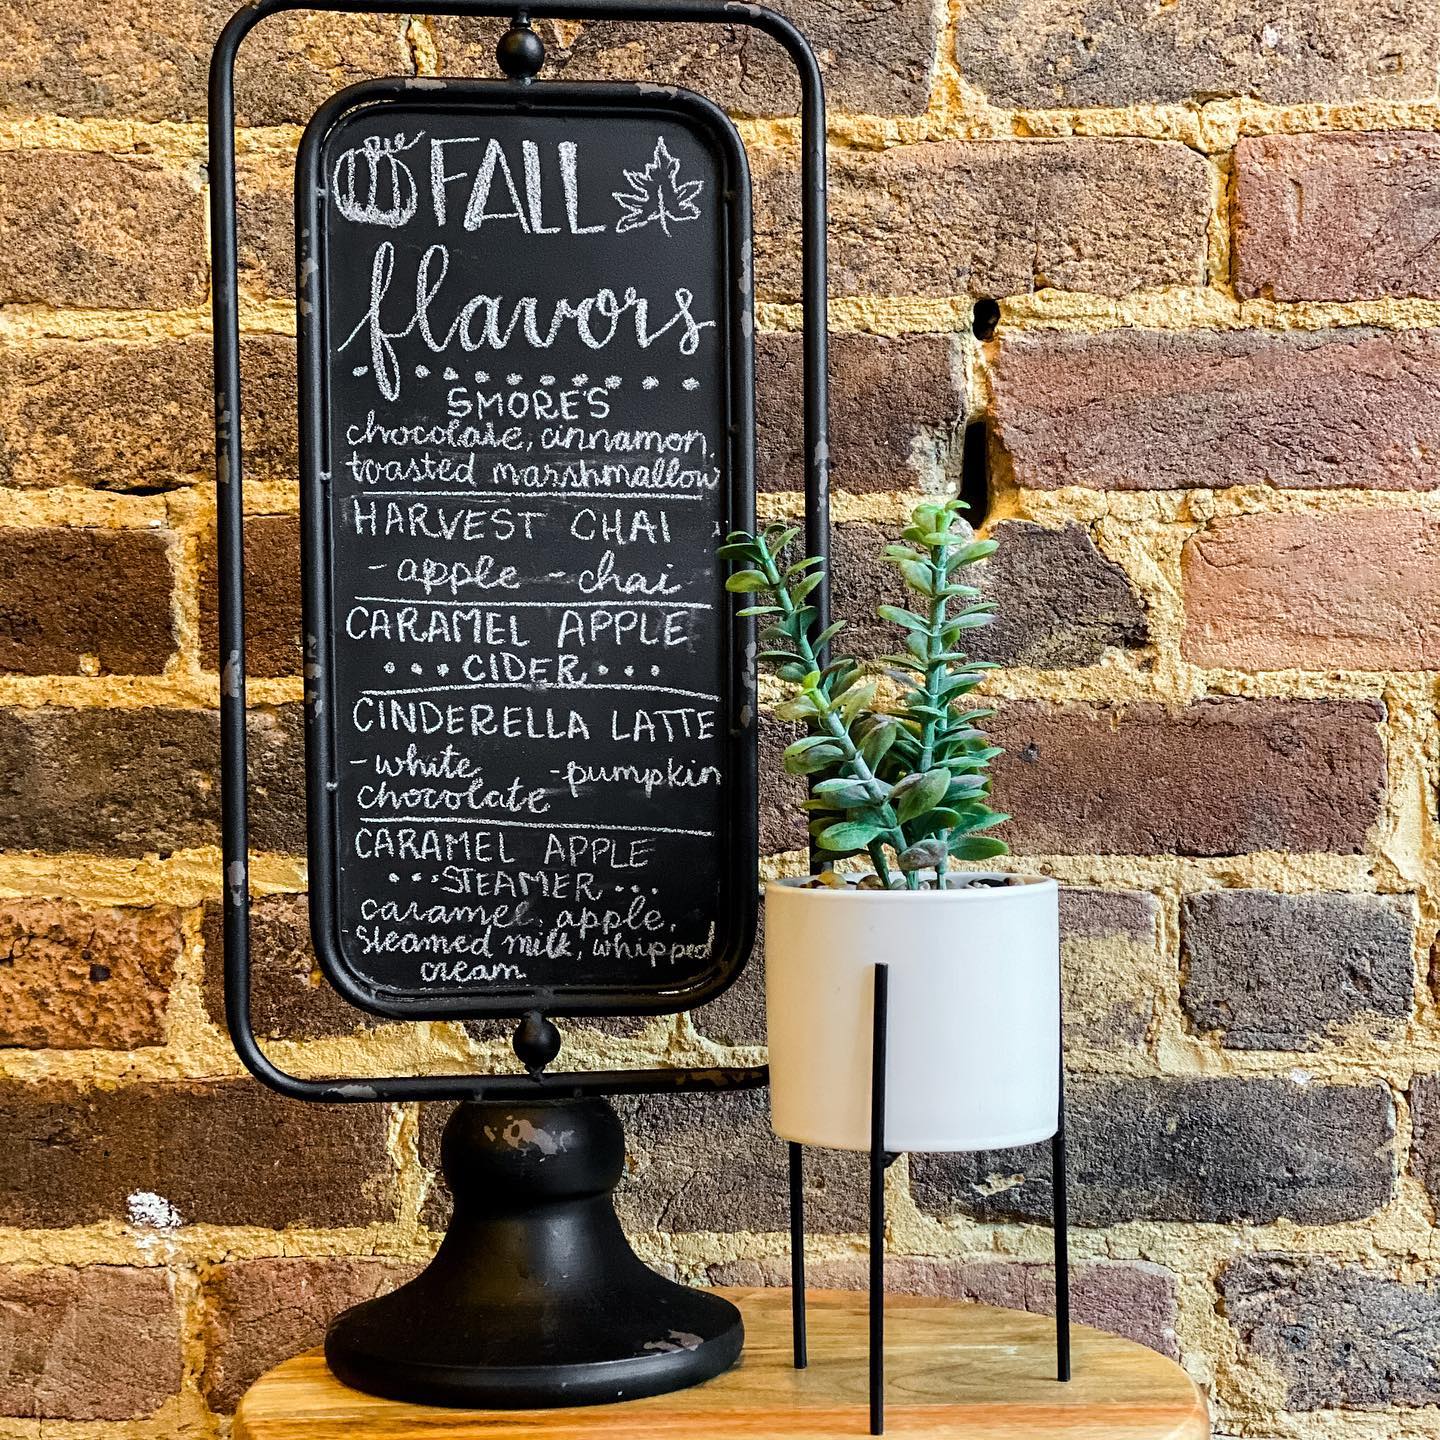 FALL
flavors
SMORE'S
chocolate, cinnamon,
toasted marshmallow
HARVEST CHAI
- apple - chai
CARAMEL APPLE
•••CIDER•••
CINDERELLA LATTE
- white - pumpkin
chocolate
CARAMEL APPLE
•••STEAMER•••
caramel, apple,
steamed milk, whipped
cream